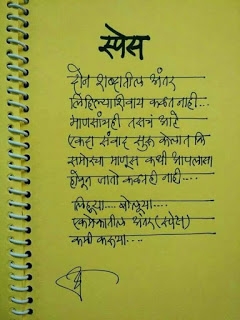 स्पेस
दोन शब्दातील अंतर
लिहिल्याशिवाय कळत नाही...
माणसांचही तसंच आहे
एकदा संवाद सुरू केल्यात कि
समोरचा माणूस कधी आपलासा
होवून जातो कळतही नाही....
लिहूया.... बोलूया....
एकमेकातील अंतर (स्पेस)
कमी करूया....